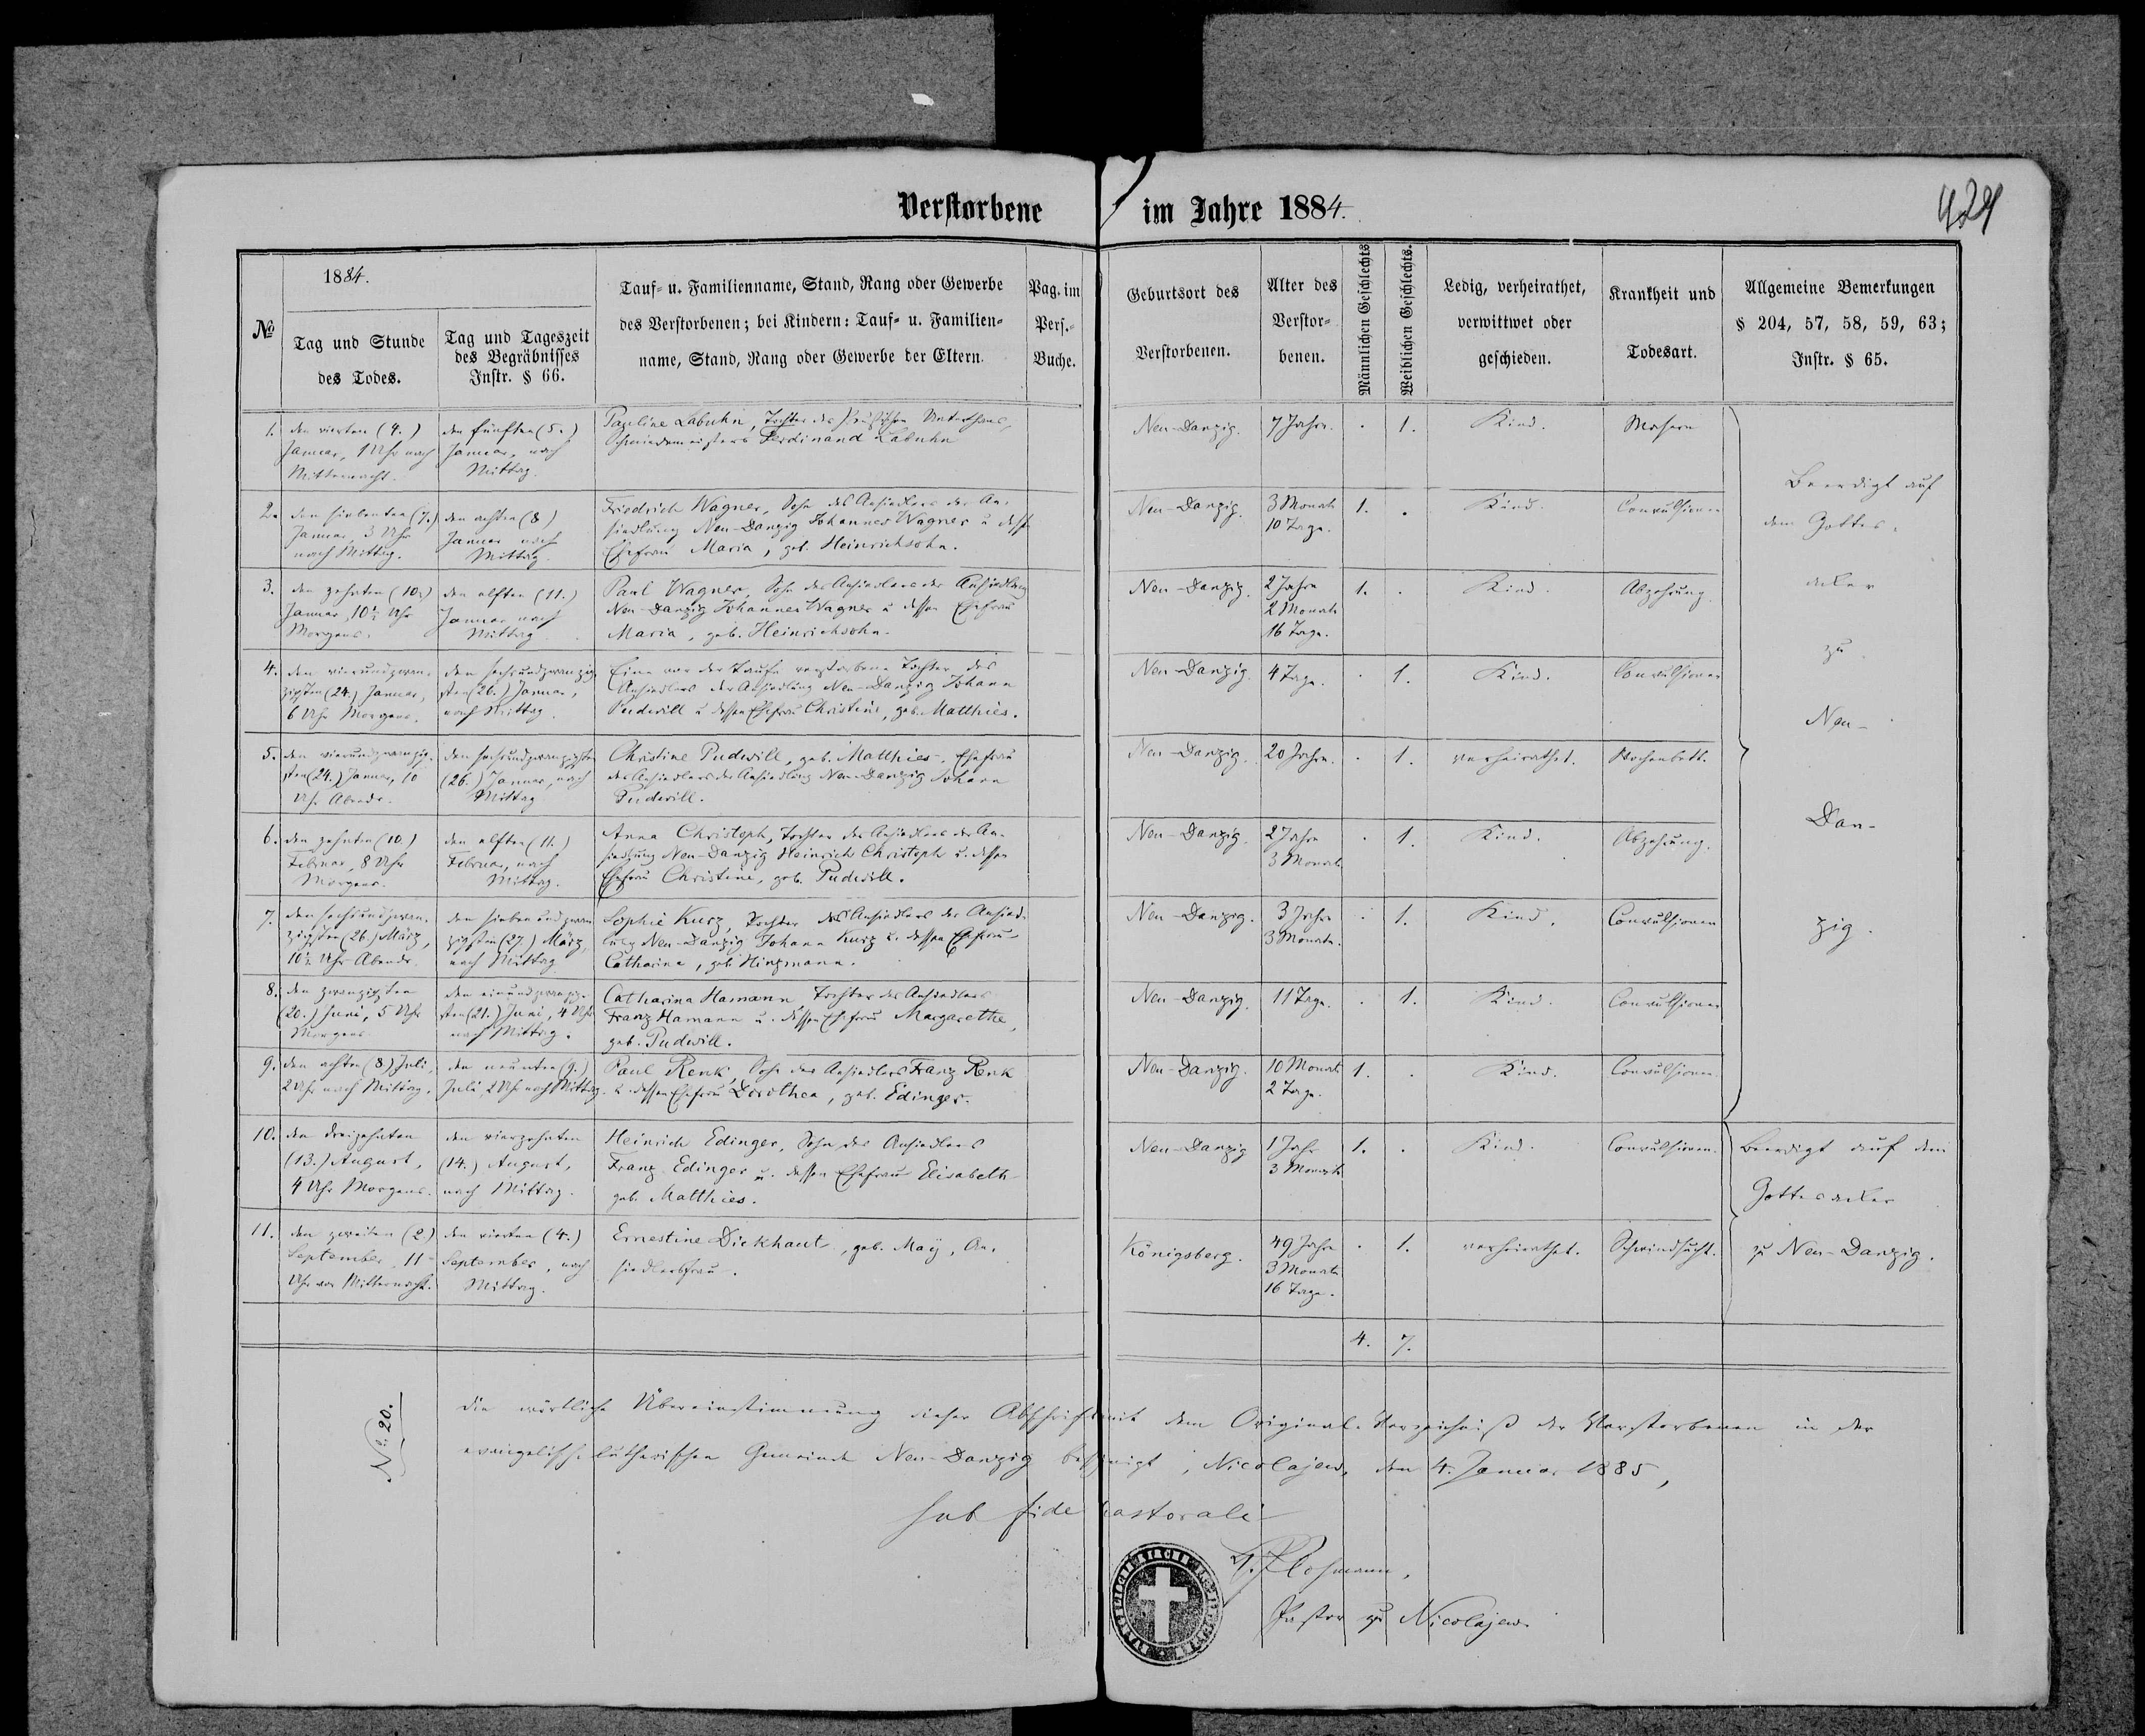 Verstorbene im Jahre 1884.
429
№
1884.
Tag und Stunde
des Todes.
Tag und Tageszeit
des Begräbnisses
Instr. § 66.
Tauf- u. Familienname, Stand, Rang oder Gewerbe
des Verstorbenen; bei Kindern: Tauf- u. Familien-
name, Stand, Rang oder Gewerbe der Eltern.
Pag. im
Pers.-
Buche.
Geburtsort des
Verstorbenen.
Alter des
Verstor-
benen.
Männlichen Geschlechts
Weiblichen Geschlechts.
Ledig, verheirathet,
verwittwet oder
geschieden.
Krankheit und
Todesart.
Allgemeine Bemerkungen
§ 204, 57, 58, 59, 63;
Instr. § 65.
1.
den vierten (4.)
Januar, 1 Uhr nach
Mitternacht.
den fünften (5.)
Januar, nach
Mittag.
Pauline Labuhn, Tochter des Preußischen Unterthans,
Schmiedemeisters Ferdinand Labuhn
Neu-Danzig.
7 Jahre.
1.
Kind.
Masern
2.
den siebenten (7.)
Januar, 3 Uhr
nach Mittag.
den achten (8)
Januar nach
Mittag.
Friedrich Wagner, Sohn des Ansiedlers der An-
siedlung Neu-Danzig Johannes Wagner u. dess.
Ehefrau Maria, geb. Heinrichsohn.
Neu-Danzig.
3 Monate
10 Tage.
1.
Kind.
Convulsionen
3.
den zehnten (10.)
Januar, 10½ Uhr
Morgens.
den elften (11.)
Januar nach
Mittag.
Paul Wagner, Sohn des Ansiedlers der Ansiedlung
Neu-Danzig Johannes Wagner u. dessen Ehefrau
Maria, geb. Heinrichsohn.
Neu-Danzig.
2 Jahre
2 Monate
16 Tage.
1.
Kind.
Abzehrung.
4.
den vierundzwan-
zigsten (24.) Januar,
6 Uhr Morgens.
den sechsundzwanzig-
sten (26.) Januar,
nach Mittag.
Eine vor der Taufe verstorbene Tochter des
Ansiedlers der Ansiedlung Neu-Danzig Johann
Pudwill u. dessen Ehefrau Christine, geb. Matthies.
Neu-Danzig.
4 Tage.
1.
Kind.
Convulsionen
5.
den vierundzwanzig-
sten (24.) Januar, 10
Uhr Abends.
den sechsundzwanzigsten
(26.) Januar, nach
Mittag
Christine Pudwill, geb. Matthies, Ehefrau
des Ansiedlers der Ansiedlung Neu-Danzig Johann
Pudwill.
Neu-Danzig.
20 Jahre.
1.
verheirathet.
Wochenbett.
6.
den zehnten (10.)
Februar, 8 Uhr
Morgens.
den elften (11.)
Februar, nach
Mittag.
Anna Christoph, Tochter des Ansiedlers der An-
siedlung Neu-Danzig Heinrich Christoph u. dessen
Ehefrau Christine, geb. Pudwill.
Neu-Danzig.
2 Jahre
3 Monate
1.
Kind.
Abzehrung.
7.
den sechsundzwan-
zigsten (26.) März,
10½ Uhr Abends.
den siebenundzwan-
zigsten (27.) März,
nach Mittag
Sophie Kurz, Tochter des Ansiedlers der Ansied-
lung Neu-Danzig Johann Kurz u. dessen Ehefrau
Catharina, geb. Hinzmann.
Neu-Danzig.
3 Jahre
3 Monate.
1.
Kind.
Convulsionen
8.
den zwanzigsten
(20.) Juni, 5 Uhr
Morgens
den einundzwanzig-
sten (21.) Juni, 4 Uhr
nach Mittag.
Catharina Hamann, Tochter des Ansiedlers
Franz Hamann u. dessen Ehefrau Margarethe,
geb. Pudwill.
Neu-Danzig.
11 Tage.
1.
Kind.
Convulsionen
9.
den achten (8.) Juli,
2 Uhr nach Mittag.
den neunten (9.)
Juli, 2 Uhr nach Mittag.
Paul Renk, Sohn des Ansiedlers Franz Renk
u. dessen Ehefrau Dorothea, geb. Edinger.
Neu-Danzig.
10 Monate
2 Tage.
1.
Kind.
Convulsionen.
Beerdigt auf
dem Gottes-
acker
zu
Neu-
Dan-
zig.
10.
den dreizehnten
(13.) August,
4 Uhr Morgens.
den vierzehnten
(14.) August,
nach Mittag.
Heinrich Edinger, Sohn des Ansiedlers
Franz Edinger u. dessen Ehefrau Elisabeth
geb. Matthies.
Neu-Danzig
1 Jahr
3 Monate
1.
Kind.
Convulsionen.
11.
den zweiten (2.)
September, 11
Uhr vor Mitternacht.
den vierten (4.)
September, nach
Mittag.
Ernestine Dickhaut, geb. Maÿ, An-
siedlersfrau.
Königsberg.
49 Jahre
3 Monate
16 Tage.
1.
verheirathet.
Schwindsucht.
Beerdigt auf dem
Gottesacker
zu Neu-Danzig.
4. 7.
№ 20.
Die wörtliche Übereinstimmung dieser Abschrift mit dem Original-Verzeichniß der Verstorbenen in der
evangelisch-lutherischen Gemeinde Neu-Danzig bescheinigt, Nicolajew, den 4. Januar 1885,
sub fide pastorali
Pastor zu Nicolajew.